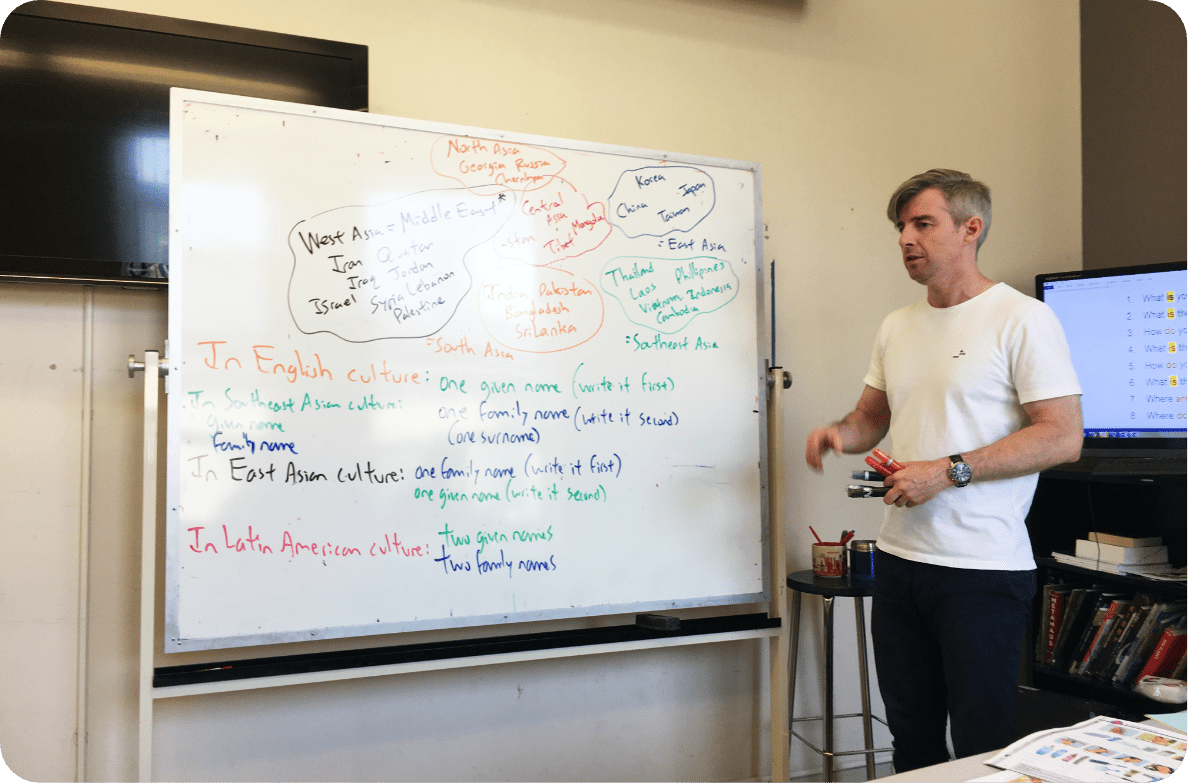 North Asia
Georgia Russia
Central
Asia
Mongolia
Tibet
Korea
Japan
China
Taiwan
= East Asia
West Asia = Middle East *
Iran Qatar
Iraq Jordan
Israel Syria Lebanon
Palestine
India Pakistan
Bangladesh
Sri Lanka
= South Asia
Thailand Phillipines
Laos
Vietnam Indonesia
Cambodia
= Southeast Asia
In English culture: one given name (write it first)
one family name (write it second)
(one surname)
In Southeast Asian culture:
given name
family name
In East Asian culture: one family name (write it first)
one given name (write it second)
In Latin American culture: two given names
two family names
1. What is
2. What is
3. How do
4. What is
5. How do
6. What is
7. Where
8. Where do